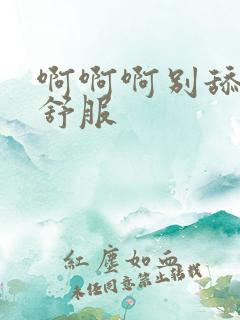 啊啊啊别舔
舒服
红尘如血
未经同意禁止转载